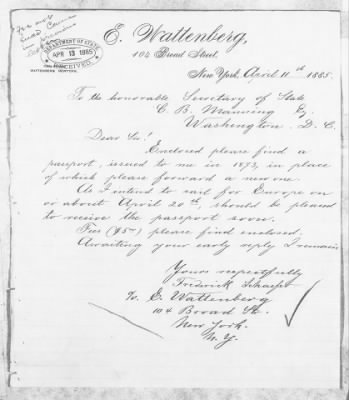 E. Wattenberg,
104 Broad Street.
DEPARTMENT OF STATE
APR 13 1885
RECEIVED
New York, April 11th 1885.
To the honorable Secretary of State
C. B. Manning Esq.
Washington D. C.
Dear Sir!
Enclosed please find a
passport, issued to me in 1873, in place
of which please forward a new one.
As I intend to sail for Europe on
or about April 20th, should be pleased
to receive the passport soon.
Fees ($5-) please find enclosed.
Awaiting your early reply I remain
Yours respectfully
Fredrick Schaefer
c/o E. Wattenberg
104 Broad St.
New York.
N. Y.